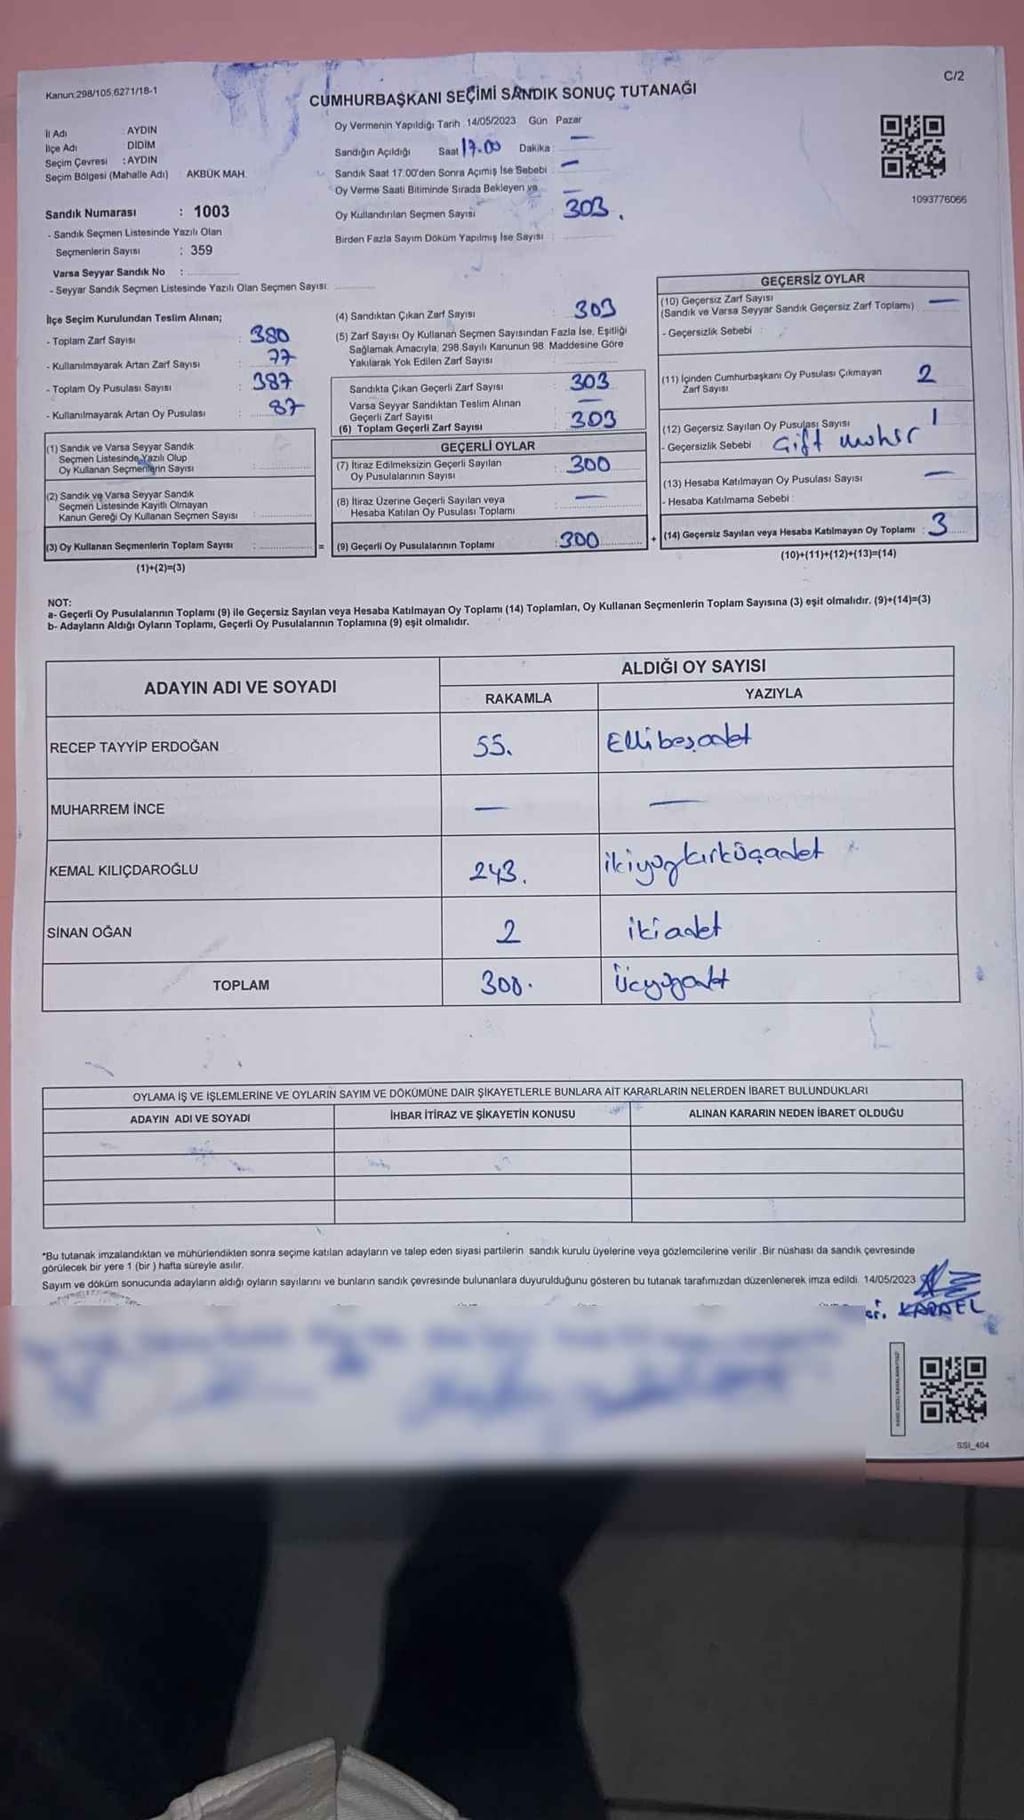 Kanun:298/105,6271/18-1
C/2
CUMHURBAŞKANI SEÇİMİ SANDIK SONUÇ TUTANAĞI
İl Adı : AYDIN
İlçe Adı : DİDİM
Seçim Çevresi : AYDIN
Seçim Bölgesi (Mahalle Adı) AKBÜK MAH.
Sandık Numarası : 1003
- Sandık Seçmen Listesinde Yazılı Olan
Seçmenlerin Sayısı : 359
Varsa Seyyar Sandık No :
- Seyyar Sandık Seçmen Listesinde Yazılı Olan Seçmen Sayısı:
Oy Vermenin Yapıldığı Tarih 14/05/2023 Gün Pazar
Sandığın Açıldığı Saat 17.00 Dakika : —
Sandık Saat 17.00'den Sonra Açımış İse Sebebi : —
Oy Verme Saati Bitiminde Sırada Bekleyen ve
Oy Kullandırılan Seçmen Sayısı — 303.
Birden Fazla Sayım Döküm Yapılmış İse Sayısı :
1093776066
İlçe Seçim Kurulundan Teslim Alınan;
- Toplam Zarf Sayısı : 380
- Kullanılmayarak Artan Zarf Sayısı : 77
- Toplam Oy Pusulası Sayısı : 387
- Kullanılmayarak Artan Oy Pusulası : 87
(1) Sandık ve Varsa Seyyar Sandık
Seçmen Listesinde Yazılı Olup
Oy Kullanan Seçmenlerin Sayısı :
(2) Sandık ve Varsa Seyyar Sandık
Seçmen Listesinde Kayıtlı Olmayan
Kanun Gereği Oy Kullanan Seçmen Sayısı :
(3) Oy Kullanan Seçmenlerin Toplam Sayısı :
(1)+(2)=(3)
(4) Sandıktan Çıkan Zarf Sayısı : 303
(5) Zarf Sayısı Oy Kullanan Seçmen Sayısından Fazla İse, Eşitliği
Sağlamak Amacıyla, 298 Sayılı Kanunun 98. Maddesine Göre
Yakılarak Yok Edilen Zarf Sayısı :
Sandıkta Çıkan Geçerli Zarf Sayısı : 303
Varsa Seyyar Sandıktan Teslim Alınan
Geçerli Zarf Sayısı : —
(6) Toplam Geçerli Zarf Sayısı : 303
GEÇERLİ OYLAR
(7) İtiraz Edilmeksizin Geçerli Sayılan
Oy Pusulalarının Sayısı : 300
(8) İtiraz Üzerine Geçerli Sayılan veya
Hesaba Katılan Oy Pusulası Toplamı : —
= (9) Geçerli Oy Pusulalarının Toplamı : 300
GEÇERSİZ OYLAR
(10) Geçersiz Zarf Sayısı
(Sandık ve Varsa Seyyar Sandık Geçersiz Zarf Toplamı) : —
- Geçersizlik Sebebi :
(11) İçinden Cumhurbaşkanı Oy Pusulası Çıkmayan
Zarf Sayısı 2
(12) Geçersiz Sayılan Oy Pusulası Sayısı : 1
- Geçersizlik Sebebi Çift mühür
(13) Hesaba Katılmayan Oy Pusulası Sayısı : —
- Hesaba Katılmama Sebebi :
+ (14) Geçersiz Sayılan veya Hesaba Katılmayan Oy Toplamı : 3
(10)+(11)+(12)+(13)=(14)
NOT:
a- Geçerli Oy Pusulalarının Toplamı (9) ile Geçersiz Sayılan veya Hesaba Katılmayan Oy Toplamı (14) Toplamları, Oy Kullanan Seçmenlerin Toplam Sayısına (3) eşit olmalıdır. (9)+(14)=(3)
b- Adayların Aldığı Oyların Toplamı, Geçerli Oy Pusulalarının Toplamına (9) eşit olmalıdır.
ADAYIN ADI VE SOYADI
ALDIĞI OY SAYISI
RAKAMLA YAZIYLA
RECEP TAYYİP ERDOĞAN 55. Ellibeş adet
MUHARREM İNCE — —
KEMAL KILIÇDAROĞLU 243. ikiyüzkırküçadet
SİNAN OĞAN 2 iki adet
TOPLAM 300. Üçyüzadet
OYLAMA İŞ VE İŞLEMLERİNE VE OYLARIN SAYIM VE DÖKÜMÜNE DAİR ŞİKAYETLERLE BUNLARA AİT KARARLARIN NELERDEN İBARET BULUNDUKLARI
ADAYIN ADI VE SOYADI İHBAR İTİRAZ VE ŞİKAYETİN KONUSU ALINAN KARARIN NEDEN İBARET OLDUĞU
*Bu tutanak imzalandıktan ve mühürlendikten sonra seçime katılan adayların ve talep eden siyasi partilerin sandık kurulu üyelerine veya gözlemcilerine verilir. Bir nüshası da sandık çevresinde
görülecek bir yere 1 (bir) hafta süreyle asılır.
Sayım ve döküm sonucunda adayların aldığı oyların sayılarını ve bunların sandık çevresinde bulunanlara duyurulduğunu gösteren bu tutanak tarafımızdan düzenlenerek imza edildi. 14/05/2023
SSI_404